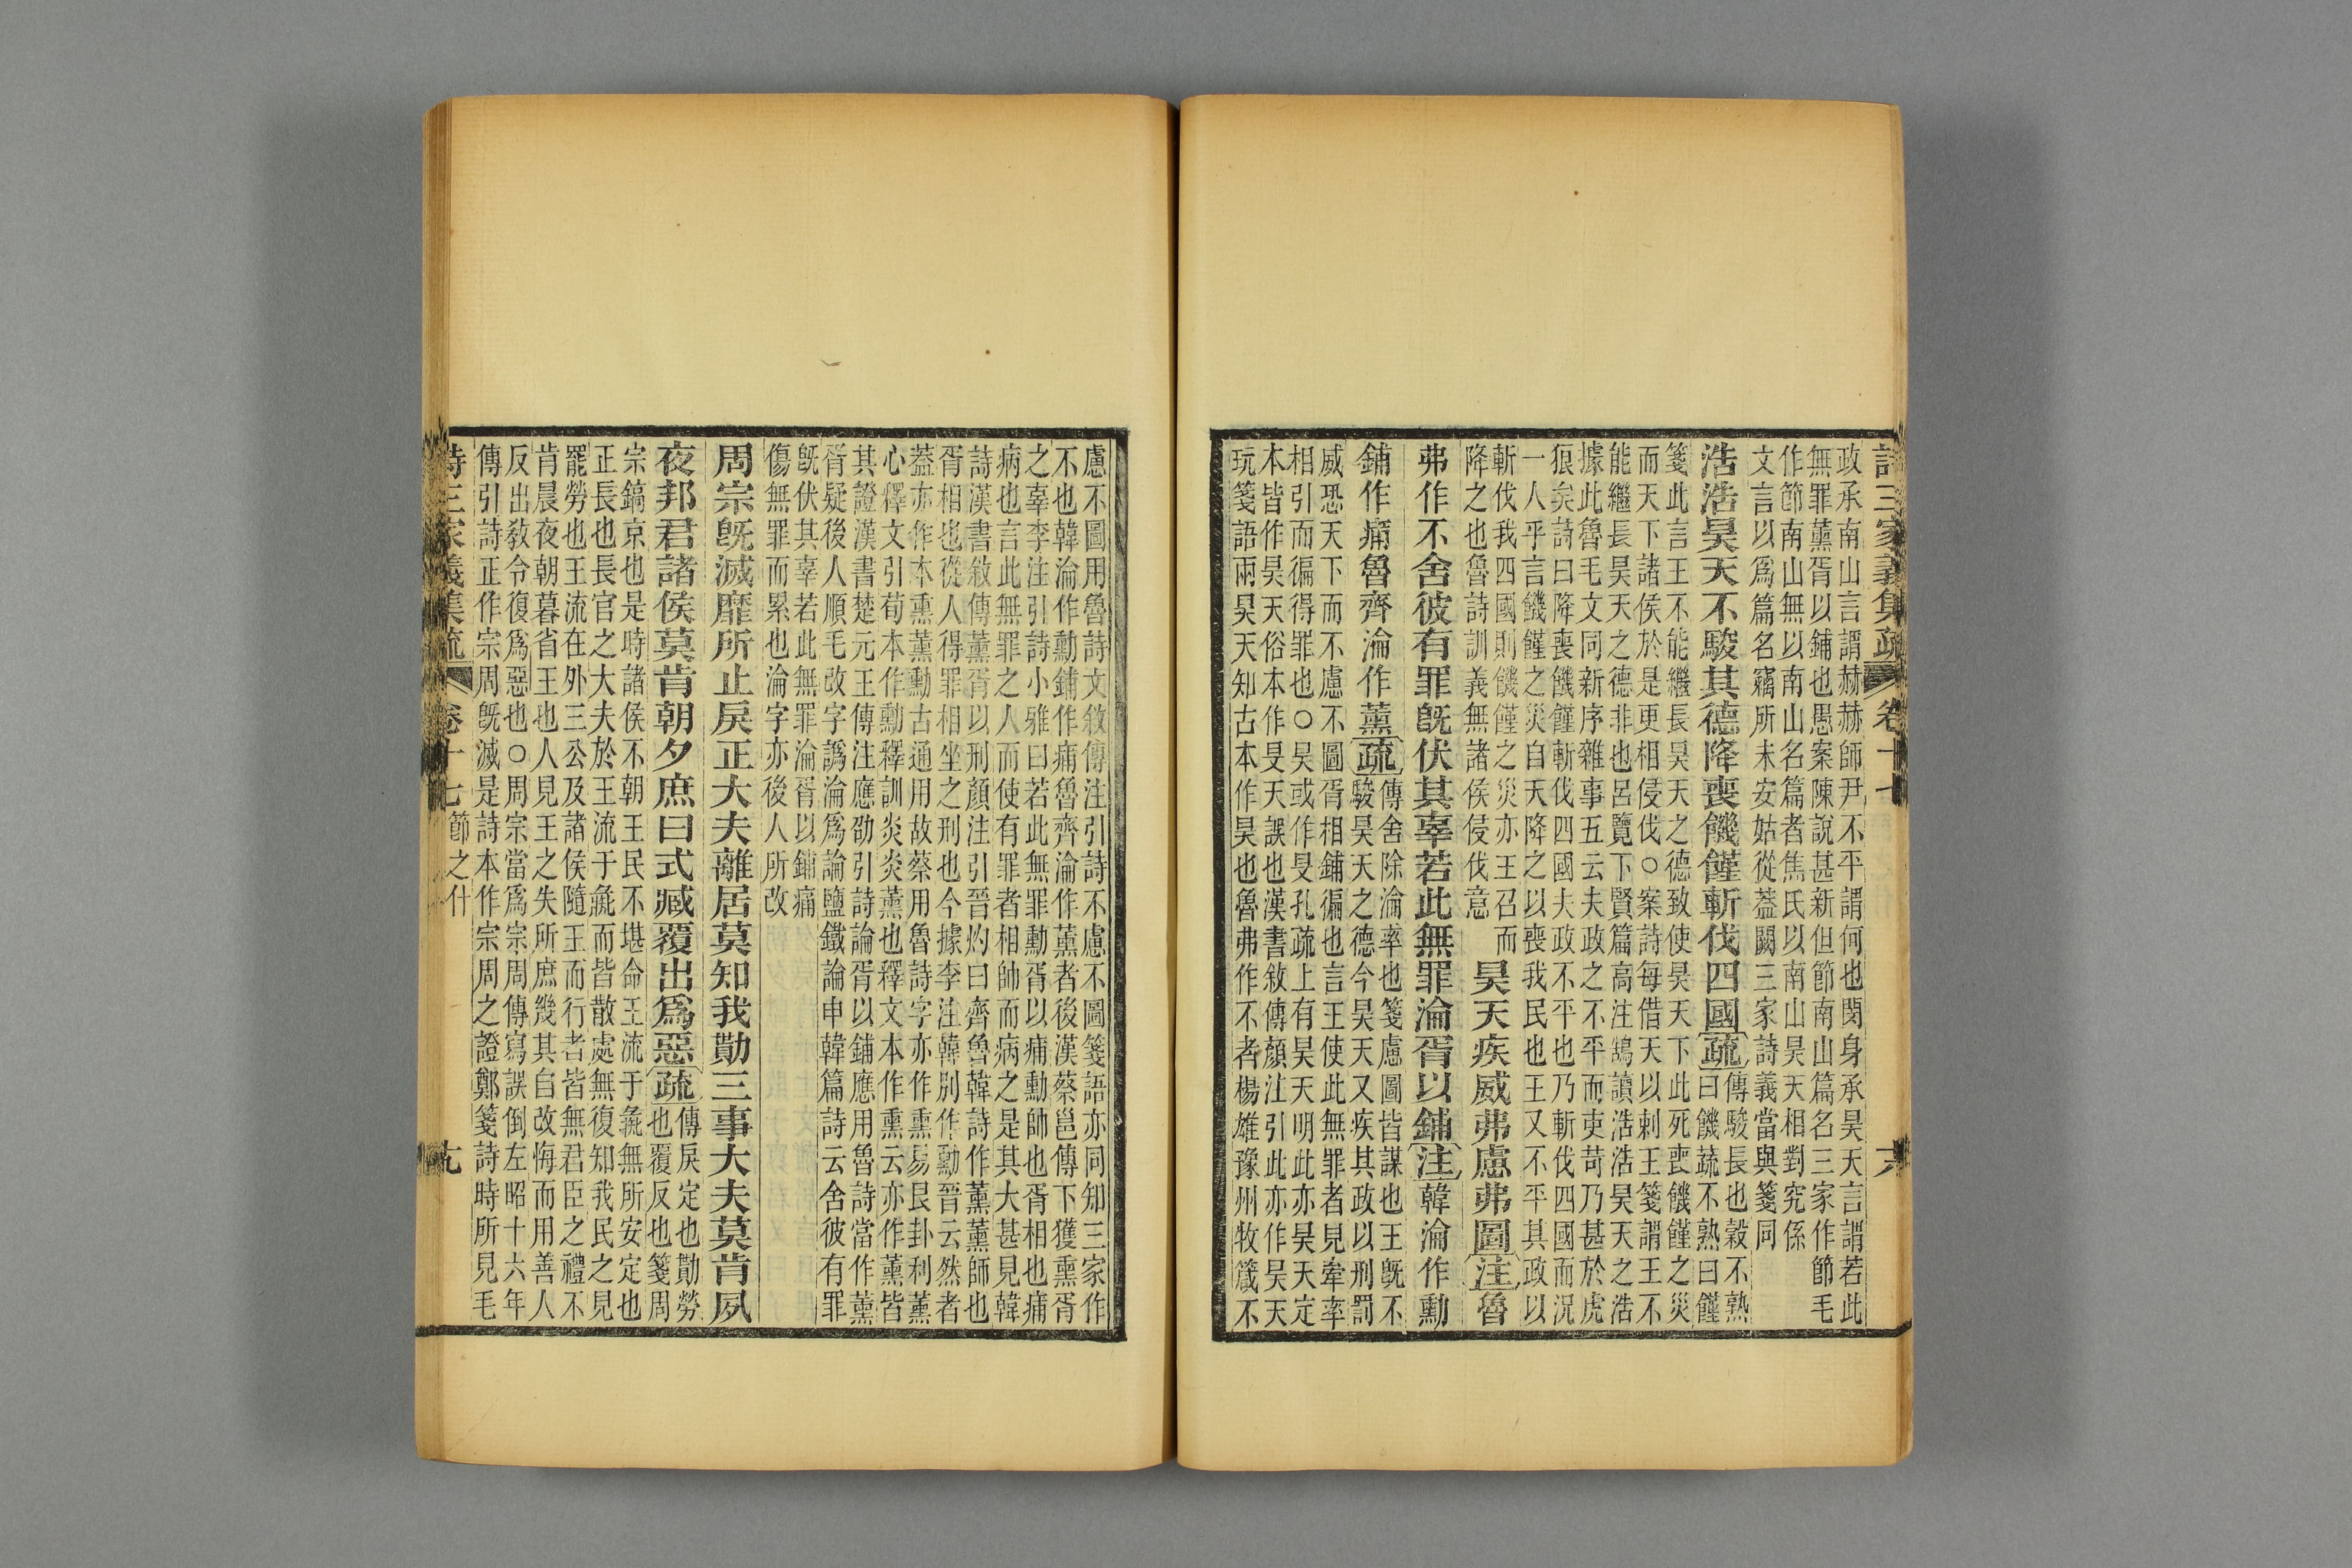 詩三家義集疏 卷十七 六
政承南山言謂赫赫師尹不平謂何也閔身承昊天言謂若此
無罪薰胥以鋪也愚案陳說甚新但節南山篇名三家作節毛
作節南山無以南山名篇者焦氏以南山昊天相對究係
文言以爲篇名竊所未安姑從蓋闕三家詩義當與箋同
浩浩昊天不駿其德降喪饑饉斬伐四國疏傳駿長也穀不熟
曰饑蔬不熟曰饉
箋此言王不能繼長昊天之德致使昊天下此死喪饑饉之災
而天下諸侯於是更相侵伐○案詩每借天以刺王箋謂王不
能繼長昊天之德非也呂覽下賢篇高注鵠讀浩浩昊天之浩
據此魯毛文同新序雜事五云夫政之不平而吏苛乃甚於虎
狼矣詩曰降喪饑饉斬伐四國夫政不平也乃斬伐四國而況
一人乎言饑饉之災自天降之以喪我民也王又不平其政以
斬伐我四國則饑饉之災亦王召而
降之也魯詩訓義無諸侯侵伐意
昊天疾威弗慮弗圖注魯
弗作不舍彼有罪旣伏其辜若此無罪淪胥以鋪注韓淪作勳
鋪作痡魯齊淪作薰疏傳舍除淪率也箋慮圖皆謀也王旣不
駿昊天之德今昊天又疾其政以刑罰
威恐天下而不慮不圖胥相鋪徧也言王使此無罪者見牽率
相引而徧得罪也○昊或作旻孔疏上有昊天明此亦昊天定
本皆作昊天俗本作旻天誤也漢書敘傳顏注引此亦作昊天
玩箋語兩昊天知古本作昊也魯弗作不者楊雄豫州牧箴不
慮不圖用魯詩文敘傳注引詩不慮不圖箋語亦同知三家作
不也韓淪作勳鋪作痡魯齊淪作薰者後漢蔡邕傳下獲熏胥
之辜李注引詩小雅曰若此無罪勳胥以痡勳帥也胥相也痡
病也言此無罪之人而使有罪者相帥而病之是其大甚見韓
詩漢書敘傳薰胥以刑顏注引晉灼曰齊魯韓詩作薰薰帥也
胥相也從人得罪相坐之刑也今據李注韓別作勳晉云然者
蓋亦作本熏薰勳古通用故蔡用魯詩字亦作熏易艮卦利薰
心釋文引荀本作勳釋訓炎炎薰也釋文本作熏云亦作薰皆
其證漢書楚元王傳注應劭引詩論胥以鋪應用魯詩當作薰
胥疑後人順毛改字譌淪爲論鹽鐵論申韓篇詩云舍彼有罪
旣伏其辜若此無罪淪胥以鋪痡
傷無罪而累也淪字亦後人所改
周宗旣滅靡所止戾正大夫離居莫知我勩三事大夫莫肯夙
夜邦君諸侯莫肯朝夕庶曰式臧覆出爲惡疏傳戾定也勩勞
也覆反也箋周
宗鎬京也是時諸侯不朝王民不堪命王流于彘無所安定也
正長也長官之大夫於王流于彘而皆散處無復知我民之見
罷勞也王流在外三公及諸侯隨王而行者皆無君臣之禮不
肯晨夜朝暮省王也人見王之失所庶幾其自改悔而用善人
反出敎令復爲惡也○周宗當爲宗周傳寫誤倒左昭十六年
傳引詩正作宗周旣滅是詩本作宗周之證鄭箋詩時所見毛
詩三家義集疏 卷十七 節之什 九